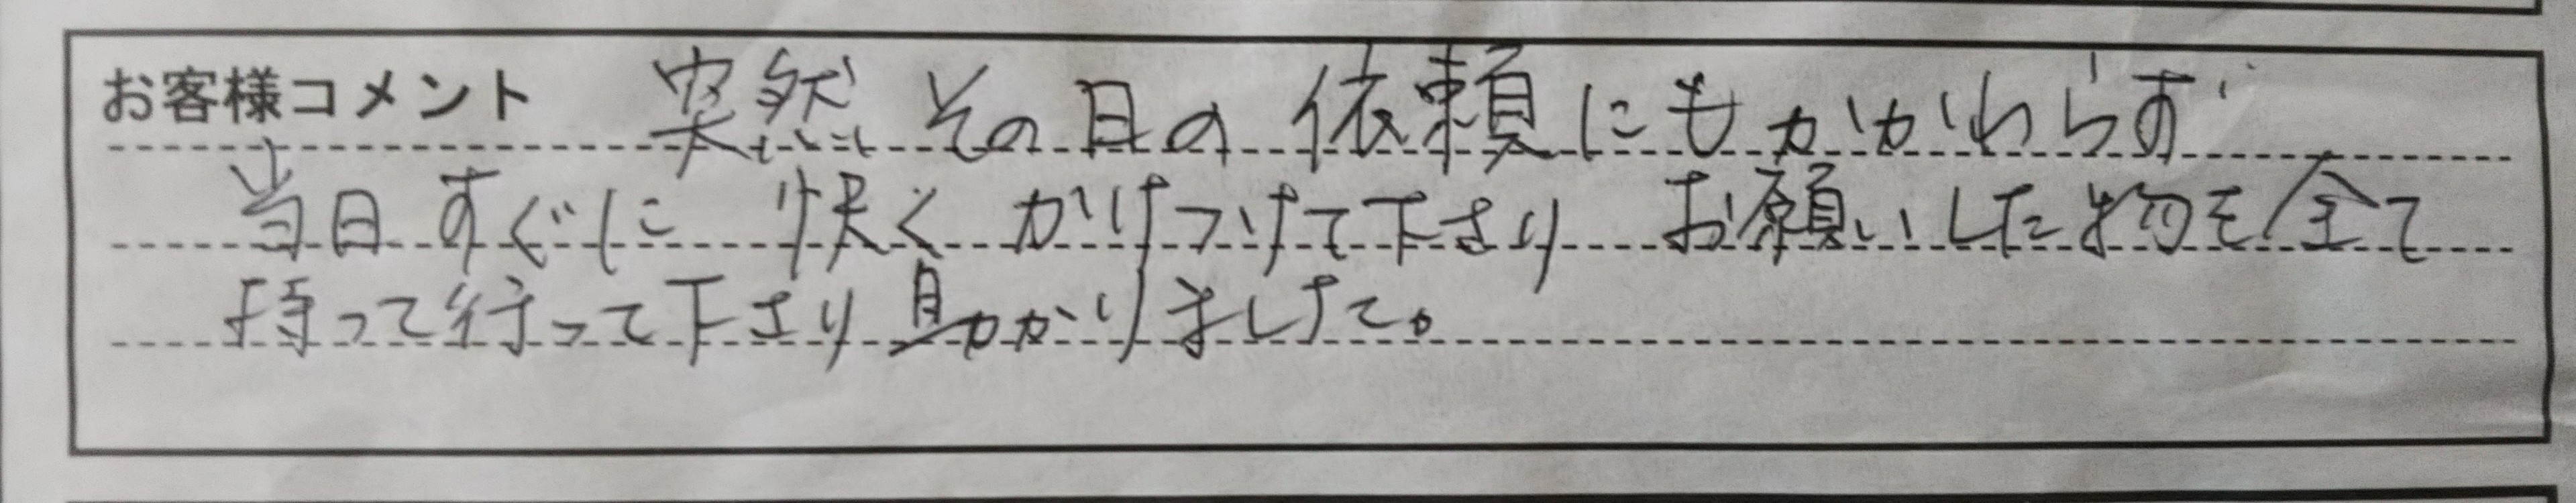 お客様コメント 突然その日の依頼にもかかわらず
当日すぐに快くかけつけて下さり お願いした物を全て
持って行って下さり助かりました。